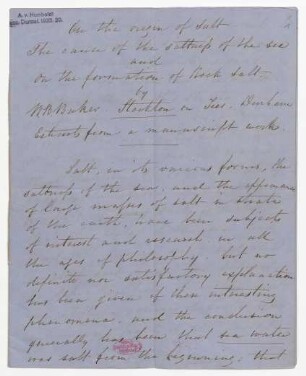 A. v. Humboldt
On the origin of Salt
The cause of the saltness of the sea
and
On the formation of Rock Salt—
by
W R Baker Stockton on Tees. Durham
Extracts from a manuscript work.
Salt, in its various forms, the
saltness of the sea, and the appearance
of large masses of salt in strata
of the earth, have been subjects
of interest and research in all
the ages of philosophy but no
definite nor satisfactory explanation
has been given of these interesting
phenomena and the conclusion
generally has been that sea water
was salt from the beginning; that